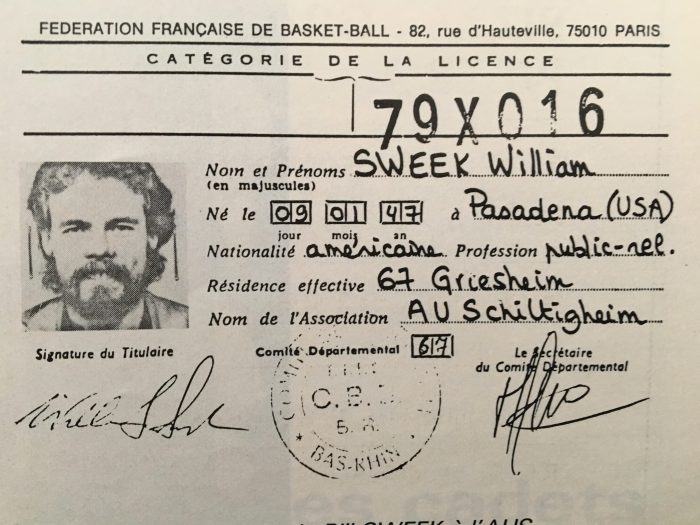 FEDERATION FRANÇAISE DE BASKET-BALL - 82, rue d'Hauteville, 75010 PARIS
CATÉGORIE DE LA LICENCE
79X016
Nom et Prénoms SWEEK William
(en majuscules)
Né le 09 01 47 à Pasadena (USA)
jour mois an
Nationalité américaine Profession public-rel.
Résidence effective 67 Griesheim
Nom de l'Association AU Schiltigheim
Signature du Titulaire Comité Départemental 67 Le Secrétaire
du Comité Départemental
C.B.
BAS-RHIN
Bill SWEEK à l'AUS